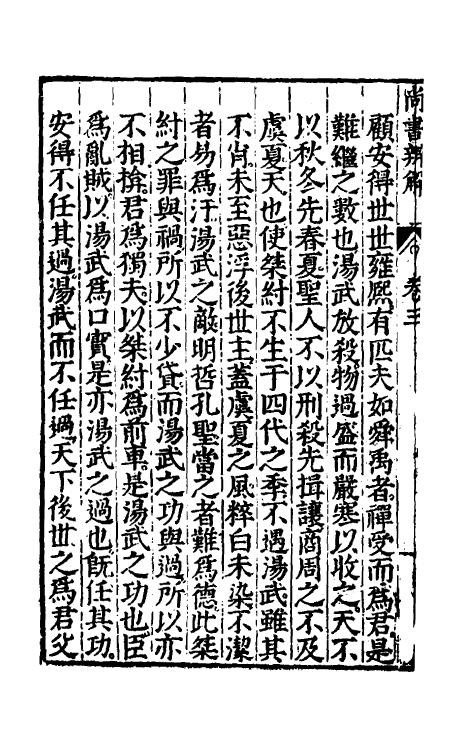 尚書辨解
卷三
顧安得世世雍熙有匹夫如舜禹者禪受而為君是
難繼之數也湯武放殺物過盛而嚴寒以收之天不
以秋冬先春夏聖人不以刑殺先揖讓商周之不及
虞夏天也使桀紂不生于四代之季不遇湯武雖其
不肖未至惡浮後世主蓋虞夏之風粹白未染不潔
者易為汙湯武之敵明哲孔聖當之者難為德此桀
紂之罪與禍所以不少貸而湯武之功與過所以亦
不相揜君為獨夫以桀紂為前車是湯武之功也臣
為亂賊以湯武為口實是亦湯武之過也旣任其功
安得不任其過湯武而不任過天下後世之為君父